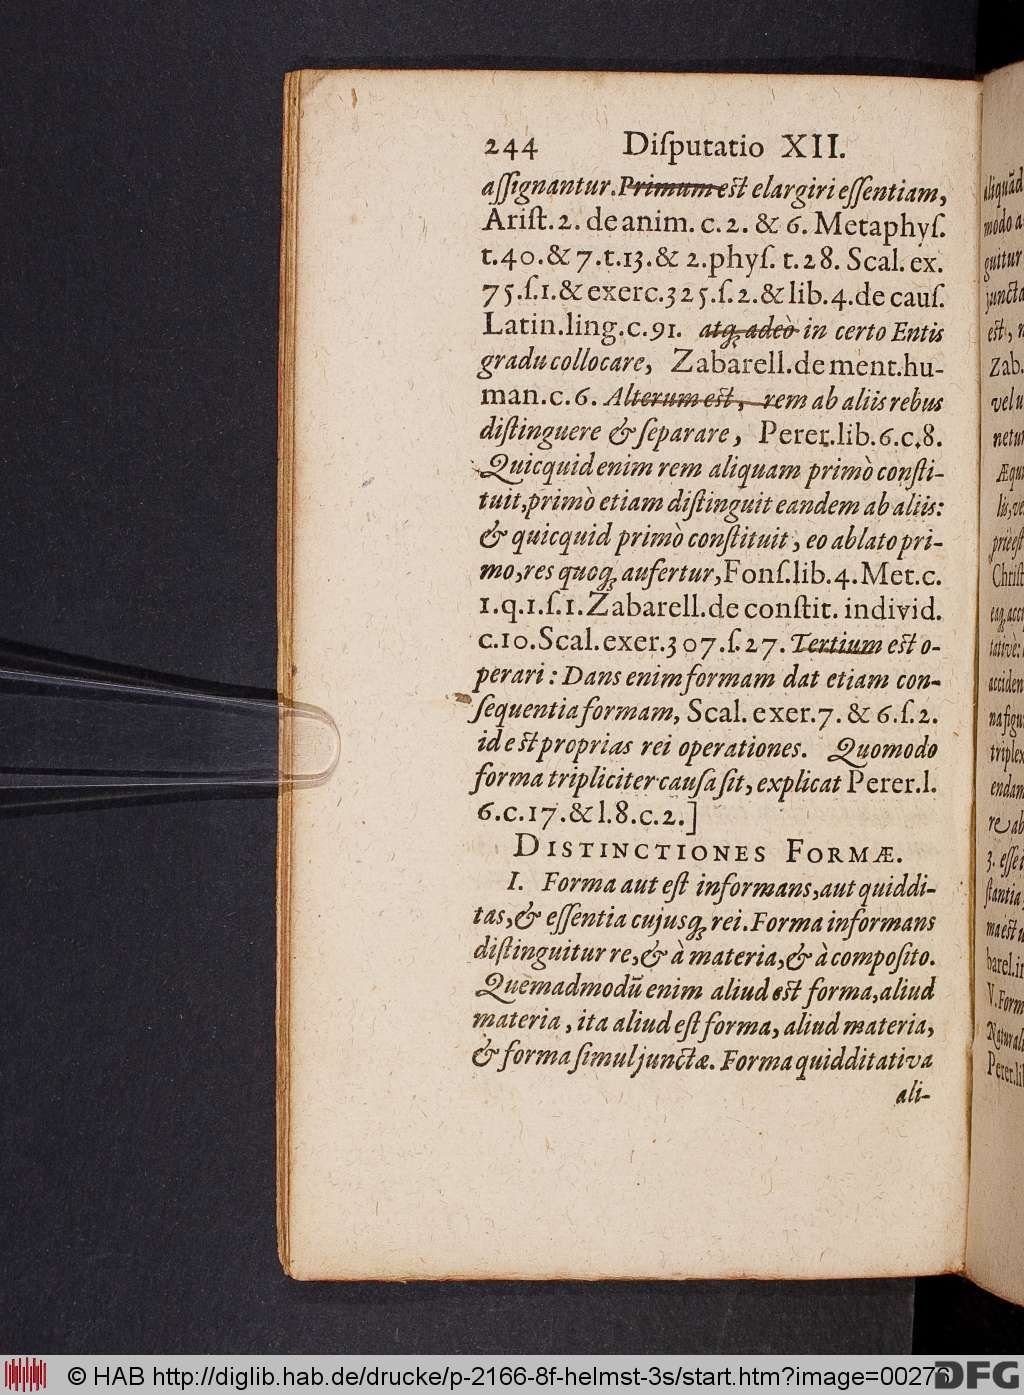 244 Diſputatio XII.
aſſignantur. Primum est elargiri eſſentiam,
Ariſt. 2. de anim. c. 2. & 6. Metaphyſ.
t. 40. & 7. t. 13. & 2. phyſ. t. 28. Scal. ex.
75. ſ. 1. & exerc. 325. ſ. 2. & lib. 4. de cauſ.
Latin. ling. c. 91. atq; adeò in certo Entis
gradu collocare, Zabarell. de ment. hu-
man. c. 6. Alterum est, rem ab aliis rebus
diſtinguere & ſeparare, Perer. lib. 6. c. 8.
Quicquid enim rem aliquam primò conſti-
tuit, primò etiam diſtinguit eandem ab aliis:
& quicquid primò conſtituit, eo ablato pri-
mo, res quoq; aufertur, Fonſ. lib. 4. Met. c.
1. q. 1. ſ. 1. Zabarell. de conſtit. individ.
c. 10. Scal. exer. 307. ſ. 27. Tertium est o-
perari: Dans enim formam dat etiam con-
ſequentia formam, Scal. exer. 7. & 6. ſ. 2.
id est proprias rei operationes. Quomodo
forma tripliciter cauſa ſit, explicat Perer. l.
6. c. 17. & l. 8. c. 2.]
DISTINCTIONES FORMÆ.
I. Forma aut eſt informans, aut quiddi-
tas, & eſſentia cujusq; rei. Forma informans
diſtinguitur re, & à materia, & à compoſito.
Quemadmodū enim aliud est forma, aliud
materia, ita aliud eſt forma, aliud materia,
& forma ſimul junctæ. Forma quidditativa
ali-
aliquād
modo a
guitur
juncta
est, n
Zab.
vel u
netur
Æqu
lis, ve
prie eſt
Chriſt
eaq; acci
tativè:
acciden
na figu
triplex
endam
re ab
3. eſſe i
ſtantia
ma est u
barel. in
V. Form
Naturali
Perer. li
© HAB http://diglib.hab.de/drucke/p-2166-8f-helmst-3s/start.htm?image=00276
DFG